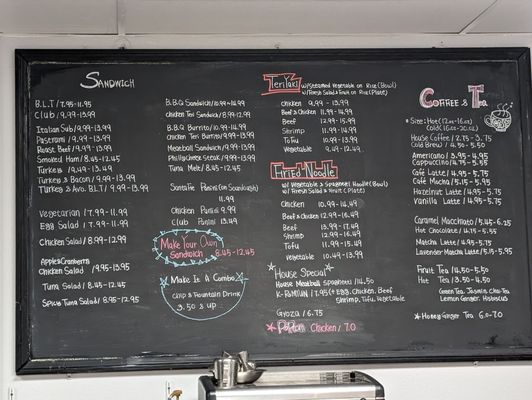 Sandwich
B.L.T / 7.95-11.95
Club / 9.99-13.99
Italian Sub / 9.99-13.99
Pastrami / 9.99-13.99
Roast Beef / 9.99-13.99
Smoked Ham / 8.45-12.45
Turkey / 9.49-13.49
Turkey & Bacon / 9.99-13.99
Turkey & Avo. B.L.T / 9.99-13.99
Vegetarian / 7.99-11.99
Egg Salad / 7.99-11.99
Chicken Salad / 8.99-12.99
Apple & Cranberry
Chicken Salad / 9.95-13.95
Tuna Salad / 8.45-12.45
Spicy Tuna Salad / 8.95-12.95
B.B.Q Sandwich / 10.99-14.99
Chicken Teri Sandwich / 8.99-12.99
B.B.Q Burrito / 10.99-14.99
Chicken Teri Burrito / 9.99-13.99
Meatball Sandwich / 9.99-13.99
Philly Cheese Steak / 9.99-13.99
Tuna Melt / 8.45-12.45
Santa Fe Panini (on Sourdough)
11.99
Chicken Panini 9.99
Club Panini 13.49
Make Your Own
Sandwich 8.45-12.45
Make It A Combo
Chip & Fountain Drink
3.50 & up
Teriyaki
w/ Steamed Vegetable on Rice (Bowl)
w/ Fresh Salad & Fruit on Rice (Plate)
Chicken 9.99-13.99
Beef & Chicken 11.99-14.99
Beef 12.99-15.99
Shrimp 11.99-14.99
Tofu 10.99-13.99
Vegetable 9.49-12.49
Fried Noodle
w/ Vegetable & Spaghetti Noodle (Bowl)
w/ Fresh Salad & Fruit (Plate)
Chicken 10.99-14.49
Beef & Chicken 12.99-16.49
Beef 13.99-17.49
Shrimp 12.99-16.49
Tofu 11.99-15.49
Vegetable 10.49-13.99
House Special
House Meatball Spaghetti / 14.50
K-Ramyun / 7.95 (+ Egg, Chicken, Beef
Shrimp, Tofu, Vegetable
Gyoza / 6.75
Popcorn Chicken / 7.0
Coffee & Tea
Size: Hot (12oz-16oz)
Cold (16oz-20oz)
House Coffee / 2.75-3.75
Cold Brew / 4.50-5.50
Americano / 3.95-4.95
Cappuccino / 4.75-5.75
Café Latte / 4.95-5.75
Café Mocha / 5.15-5.95
Hazelnut Latte / 4.95-5.75
Vanilla Latte / 4.95-5.75
Caramel Macchiato / 5.45-6.25
Hot Chocolate / 4.75-5.55
Matcha Latte / 4.95-5.75
Lavender Matcha Latte / 5.15-5.95
Fruit Tea / 4.50-5.50
Hot Tea / 3.50-4.50
Green Tea, Jasmine, Chai Tea
Lemon Ginger, Hibiscus
Honey Ginger Tea 6.0-7.0